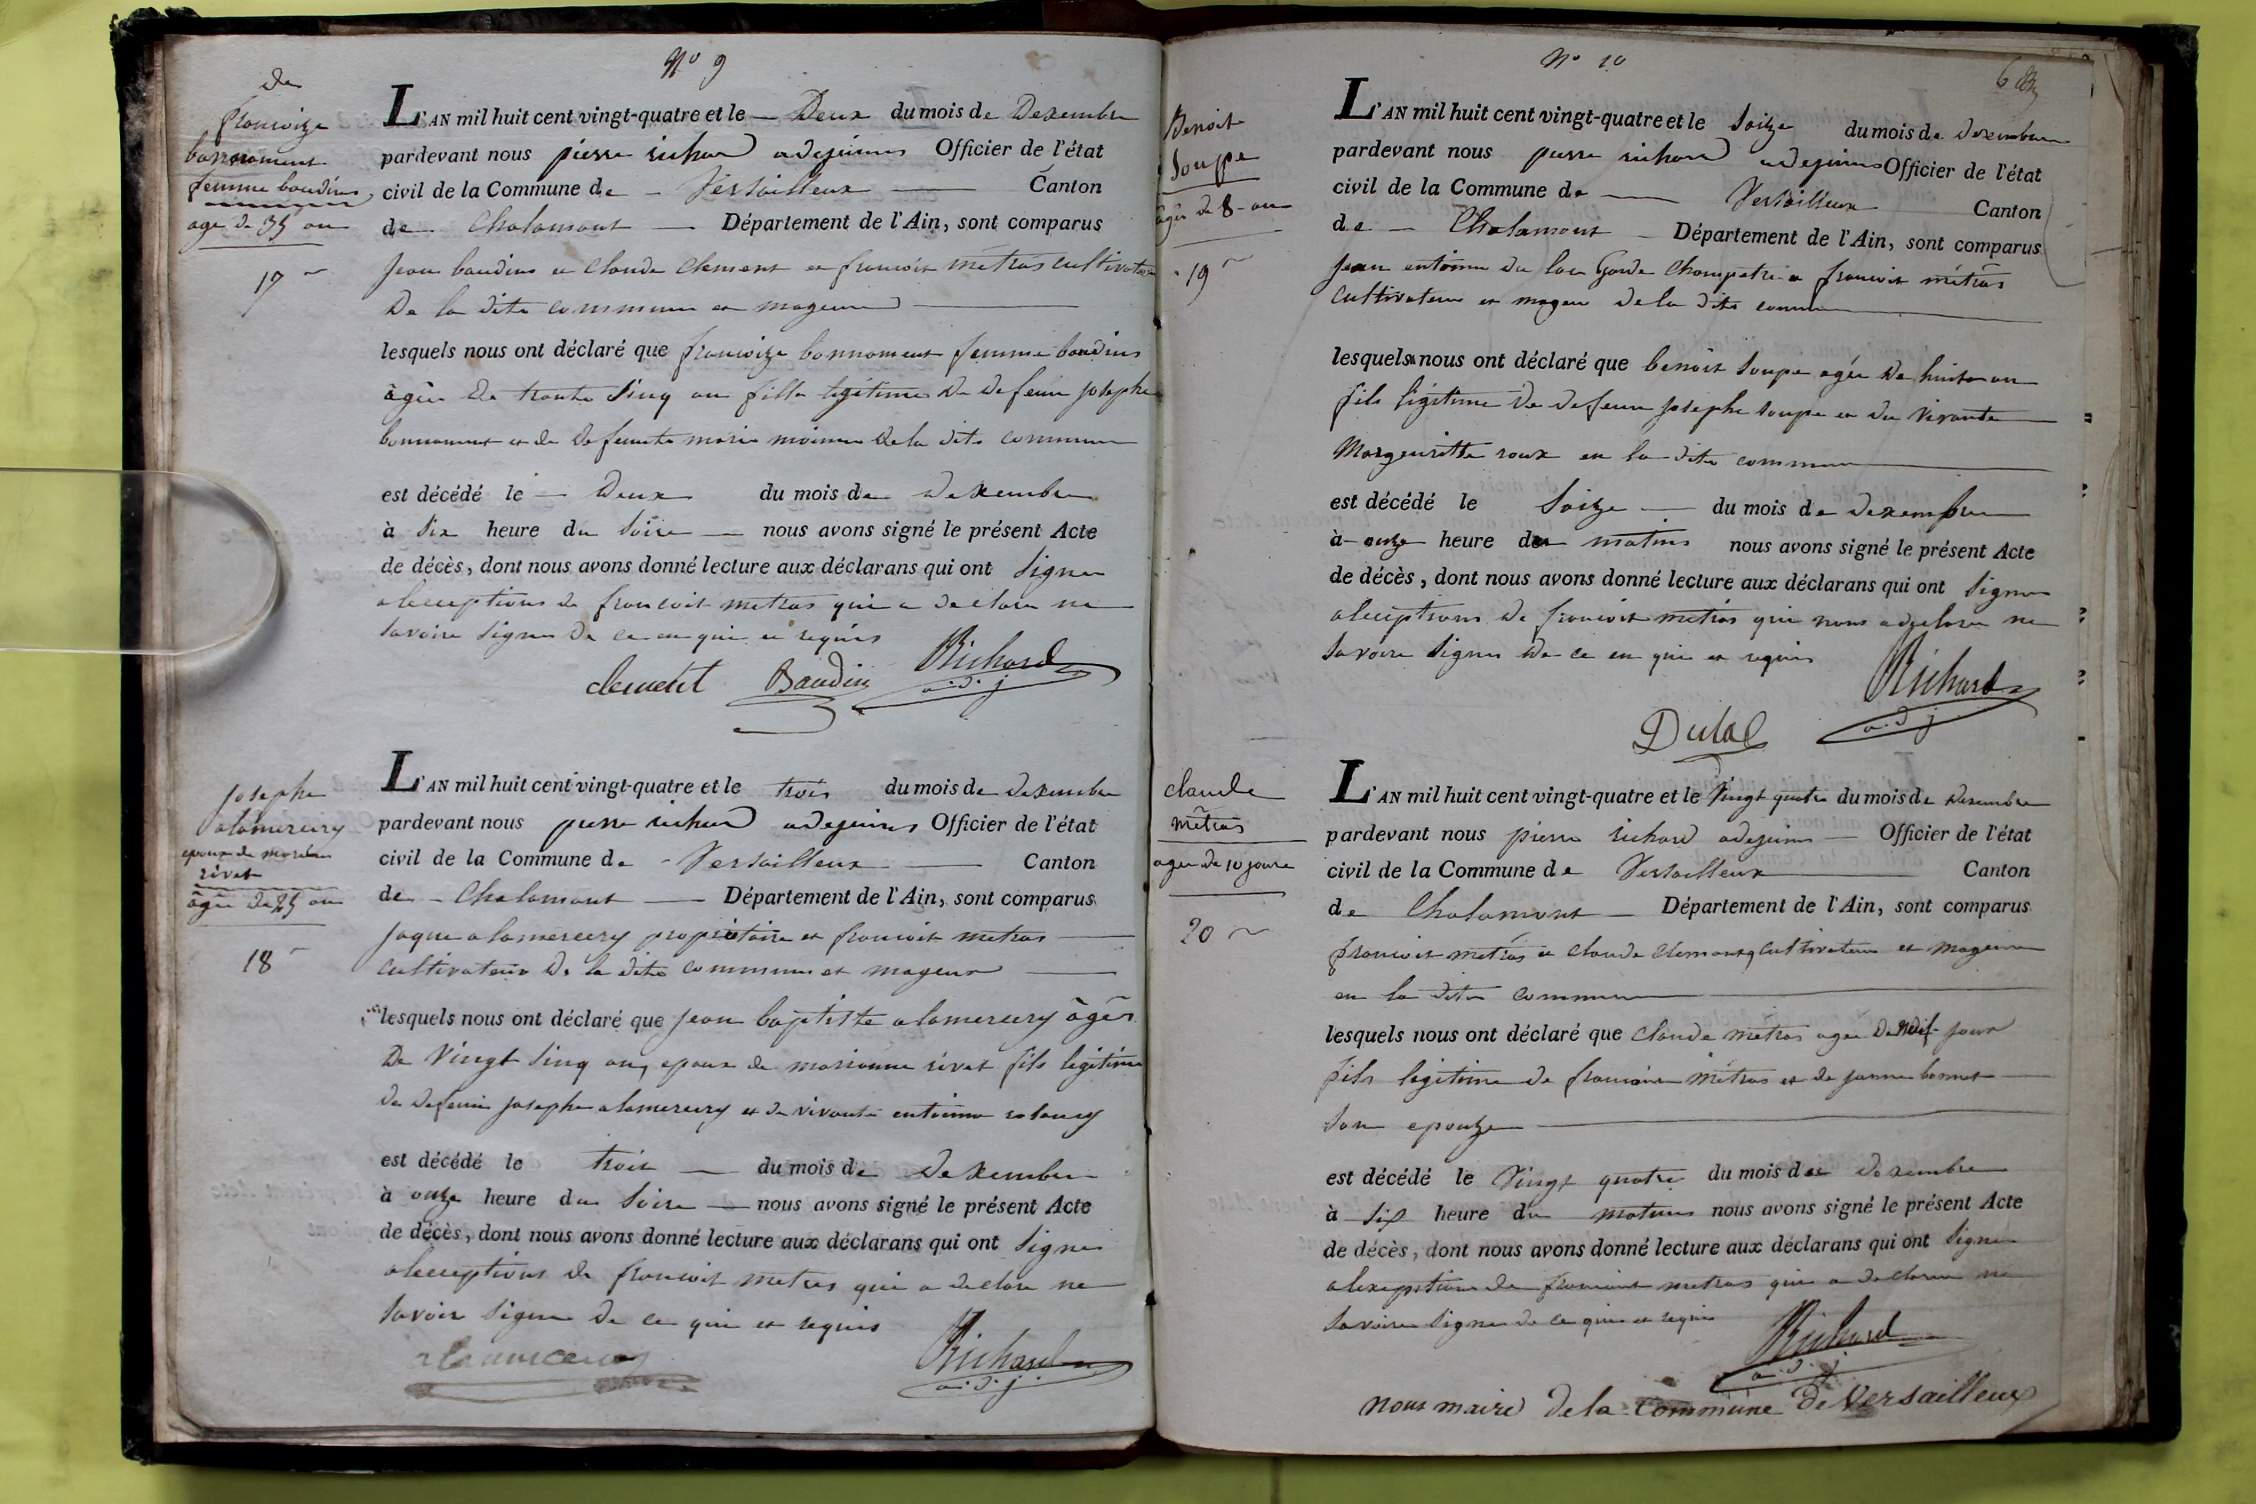 No 9
de
françoize
bonnoment
femme baudin
age de 35 an
17
L'AN mil huit cent vingt-quatre et le Deux du mois de Dexembre
pardevant nous pierre richard adejoins Officier de l'état
civil de la Commune de Versailleux Canton
de Chalamont Département de l'Ain, sont comparus
Jean baudin et claude Clement et francois métras cultivateur
De la dite commune et mageur
lesquels nous ont déclaré que françoize bonnoment femme baudin
âgée De trante sinq an fille legitime De defeun josephe
bonnoment et de defeunte marie De la dite commune
est décédé le Deux du mois de Dexembre
à six heure du soire nous avons signé le présent Acte
de décès, dont nous avons donné lecture aux déclarans qui ont signer
alecceptions de francois metras qui a declare ne
savoire signer de ce en qui et requis
clement Baudin Richard
a.d.j.
josephe
alamercery
epoux de
rivet
âgée de 25 an
18
L'AN mil huit cent vingt-quatre et le trois du mois de dexembre
pardevant nous pierre richard adejoins Officier de l'état
civil de la Commune de Versailleux Canton
de Chalamont Département de l'Ain, sont comparus
jaque alamercery propriétaire et francois metras
cultivateur De la dite commune et mageur
lesquels nous ont déclaré que jean baptiste alamercery âgée
De vingt sinq an, epoux de marianne rivet fils legitime
de defeun josephe alamercery et de vivante entoinne
est décédé le trois du mois de Dexembre
à onze heure du soire nous avons signé le présent Acte
de décès, dont nous avons donné lecture aux déclarans qui ont signer
alecceptions de francois metras qui a declare ne
savoir signer de ce qui et requis
alamercery Richard
a.d.j.
No 10
6
Benoit
soupe
âgée de 8 an
19
L'AN mil huit cent vingt-quatre et le saize du mois de dexembre
pardevant nous pierre richard adejoins Officier de l'état
civil de la Commune de Versailleux Canton
de Chalamont Département de l'Ain, sont comparus
jean entoinne du lac Garde Champetre et francois métras
cultivateur et mageur de la dite comune
lesquels nous ont déclaré que benoit soupe agée de huit an
fils légitime de defeun josephe soupe et du vivante
Margeuritte roux en la dite commune
est décédé le saize du mois de dexembre
à onze heure du matins nous avons signé le présent Acte
de décès, dont nous avons donné lecture aux déclarans qui ont signer
alecceptions de francois metras qui nous a declare ne
savoire signer de ce en qui et requis
Richard
a.d.j.
Dulac
claude
métras
agee de 10 joure
20
L'AN mil huit cent vingt-quatre et le vingt quatre du mois de dexembre
pardevant nous pierre richard adejoins Officier de l'état
civil de la Commune de Versailleux Canton
de Chalamont Département de l'Ain, sont comparus
francois métras et claude clemont, cultivateur et mageur
en la dite commune
lesquels nous ont déclaré que claude métras agée De jour
fils legitime de francois métras et de janne bonnet
son epouze
est décédé le vingt quatre du mois de dexembre
à six heure du matins nous avons signé le présent Acte
de décès, dont nous avons donné lecture aux déclarans qui ont signer
alexeptions de francois metras qui a declarer ne
savoire signer de ce qui et requis
Richard
a.d.j.
nous maire de la Commune de Versailleux